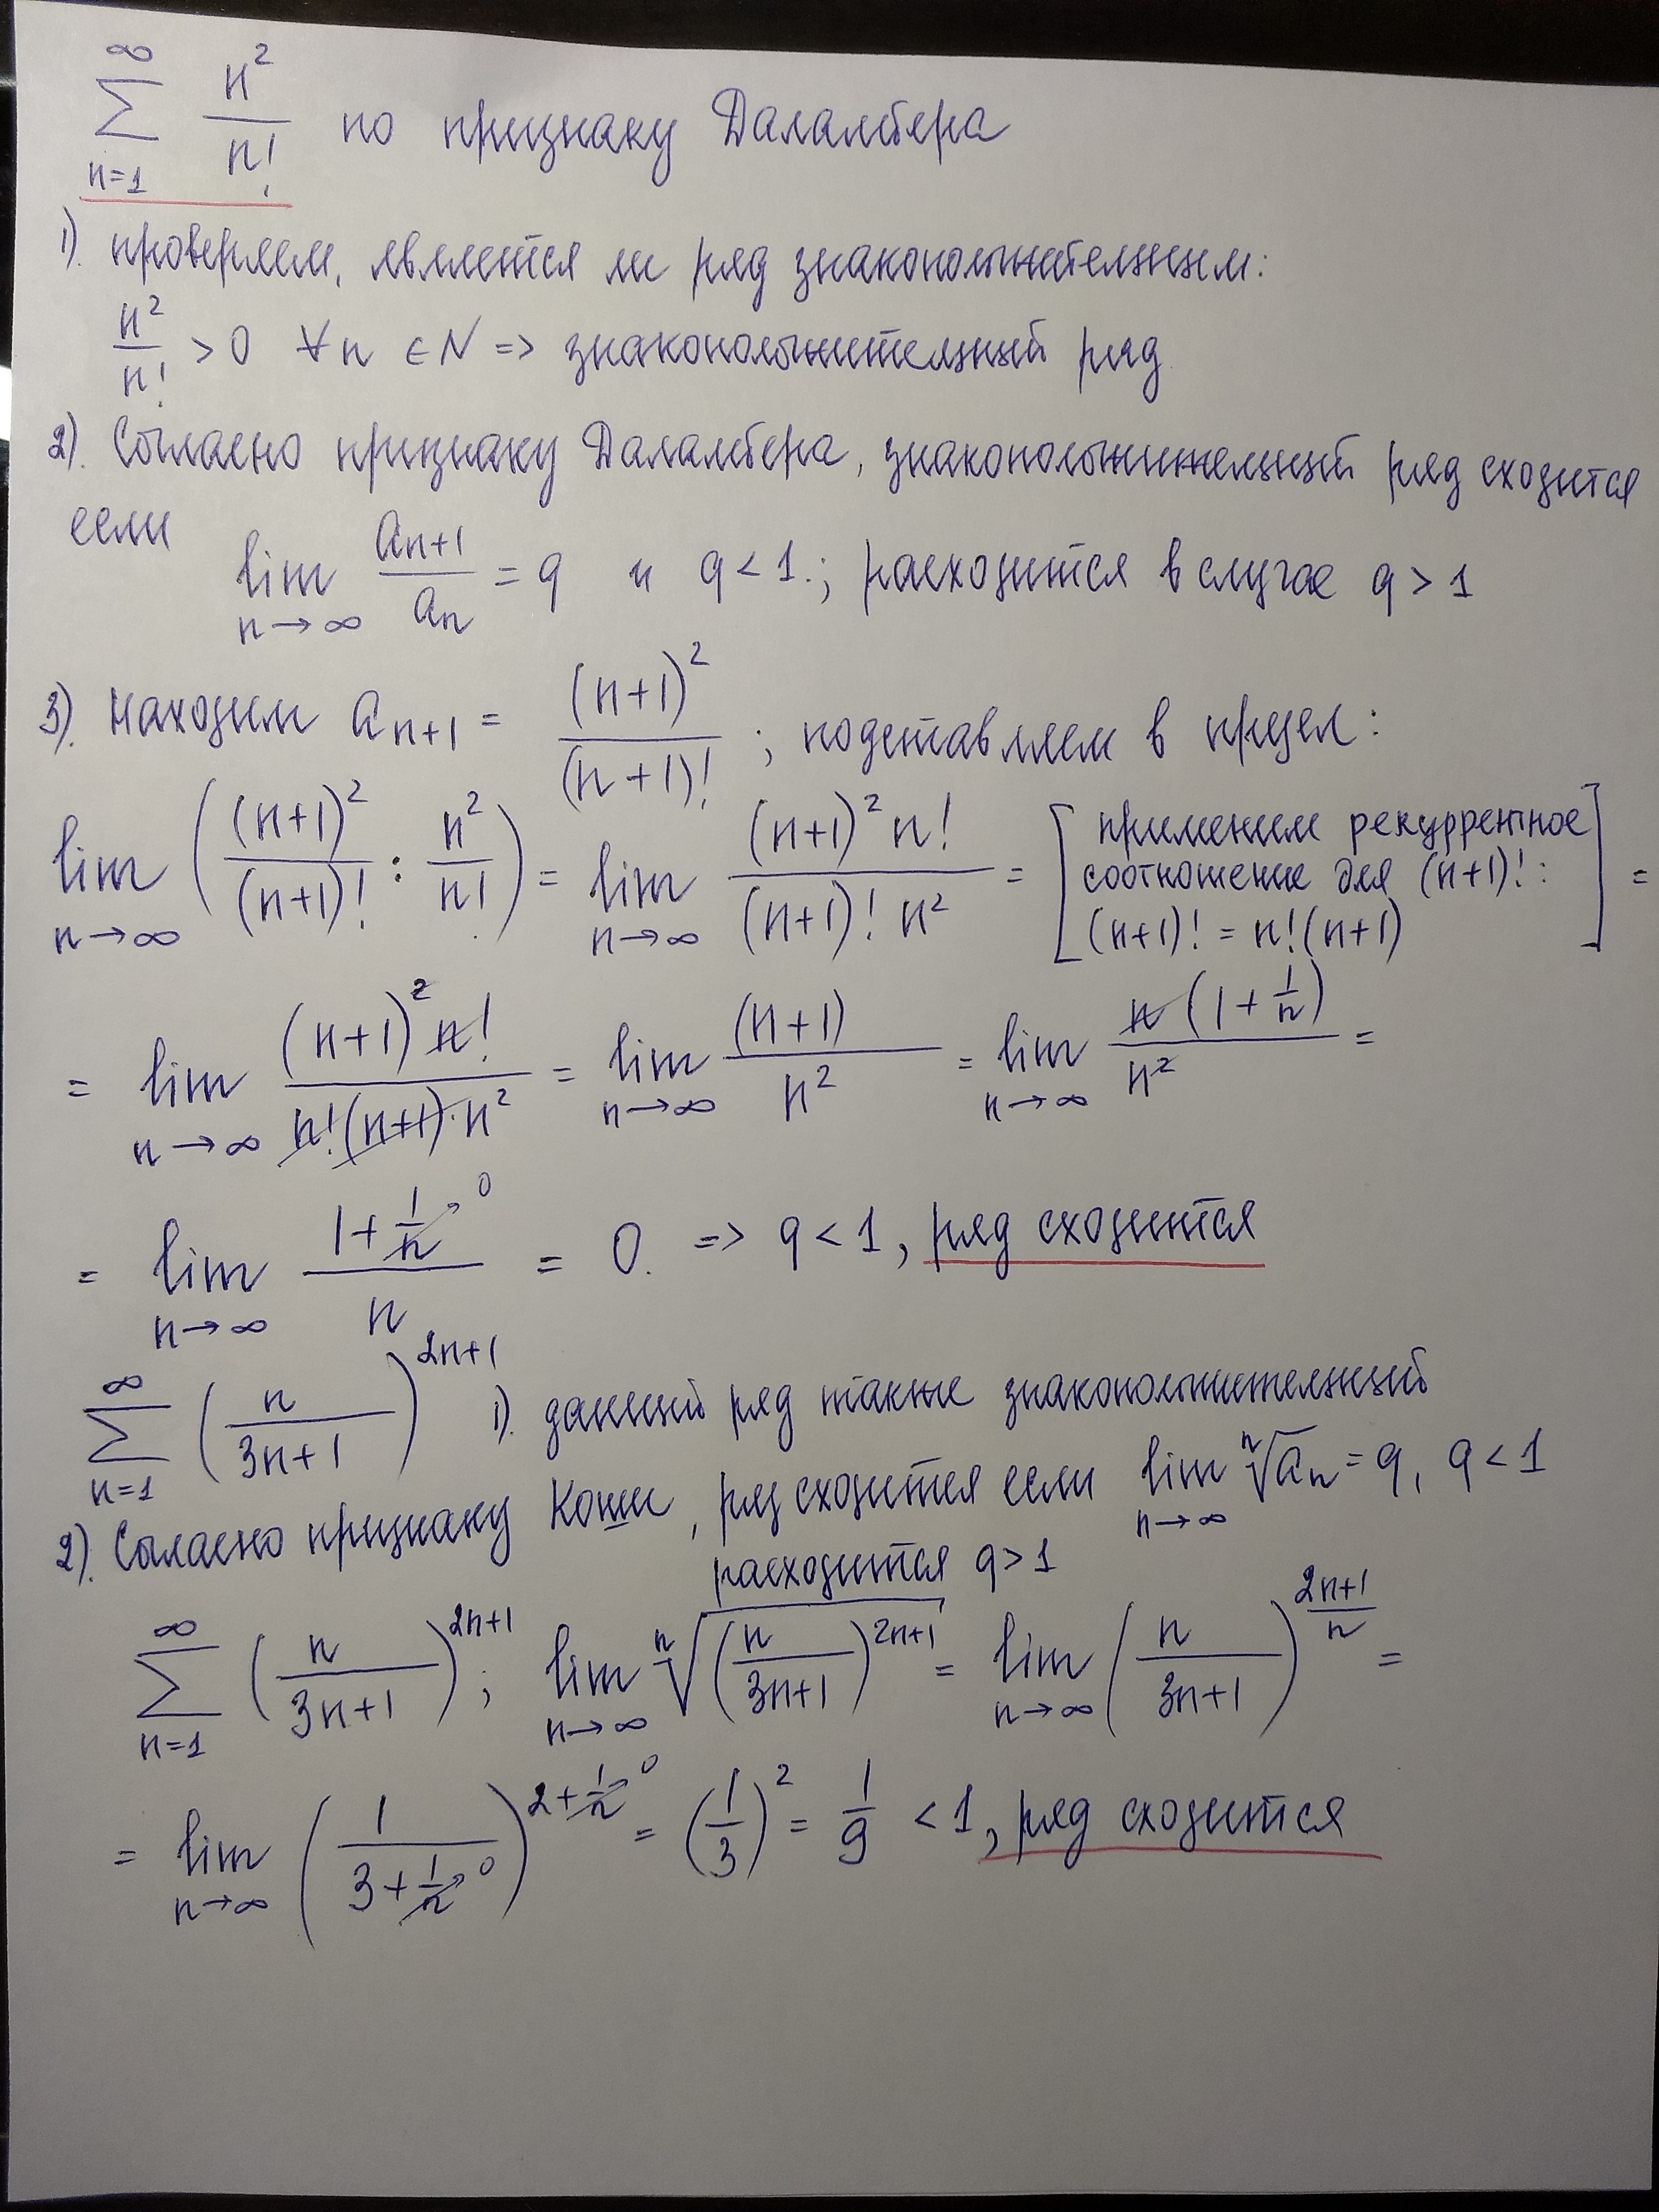 ∑_{n=1}^{∞} n²/n! по признаку Даламбера
1). проверяем, является ли ряд знакоположительным:
n²/n! > 0 ∀n ∈ N => знакоположительный ряд.
2). Согласно признаку Даламбера, знакоположительный ряд сходится
если lim_{n→∞} a_{n+1}/a_n = q и q < 1.; расходится в случае q > 1
3). Находим a_{n+1} = (n+1)²/(n+1)! ; подставляем в предел:
lim_{n→∞} ((n+1)²/(n+1)! : n²/n!) = lim_{n→∞} (n+1)² n!/((n+1)! n²) = [применим рекуррентное соотношение для (n+1)!: (n+1)! = n!(n+1)] =
= lim_{n→∞} (n+1)² n!/(n!(n+1)·n²) = lim_{n→∞} (n+1)/n² = lim_{n→∞} n(1+1/n)/n² =
= lim_{n→∞} (1+1/n→0)/n = 0. => q < 1, ряд сходится
∑_{n=1}^{∞} (n/(3n+1))^{2n+1} 1). данный ряд также знакоположительный
2). Согласно признаку Коши, ряд сходится если lim_{n→∞} ⁿ√a_n = q, q < 1
расходится q > 1
∑_{n=1}^{∞} (n/(3n+1))^{2n+1}; lim_{n→∞} ⁿ√((n/(3n+1))^{2n+1}) = lim_{n→∞} (n/(3n+1))^{(2n+1)/n} =
= lim_{n→∞} (1/(3+1/n→0))^{2+1/n→0} = (1/3)² = 1/9 < 1, ряд сходится